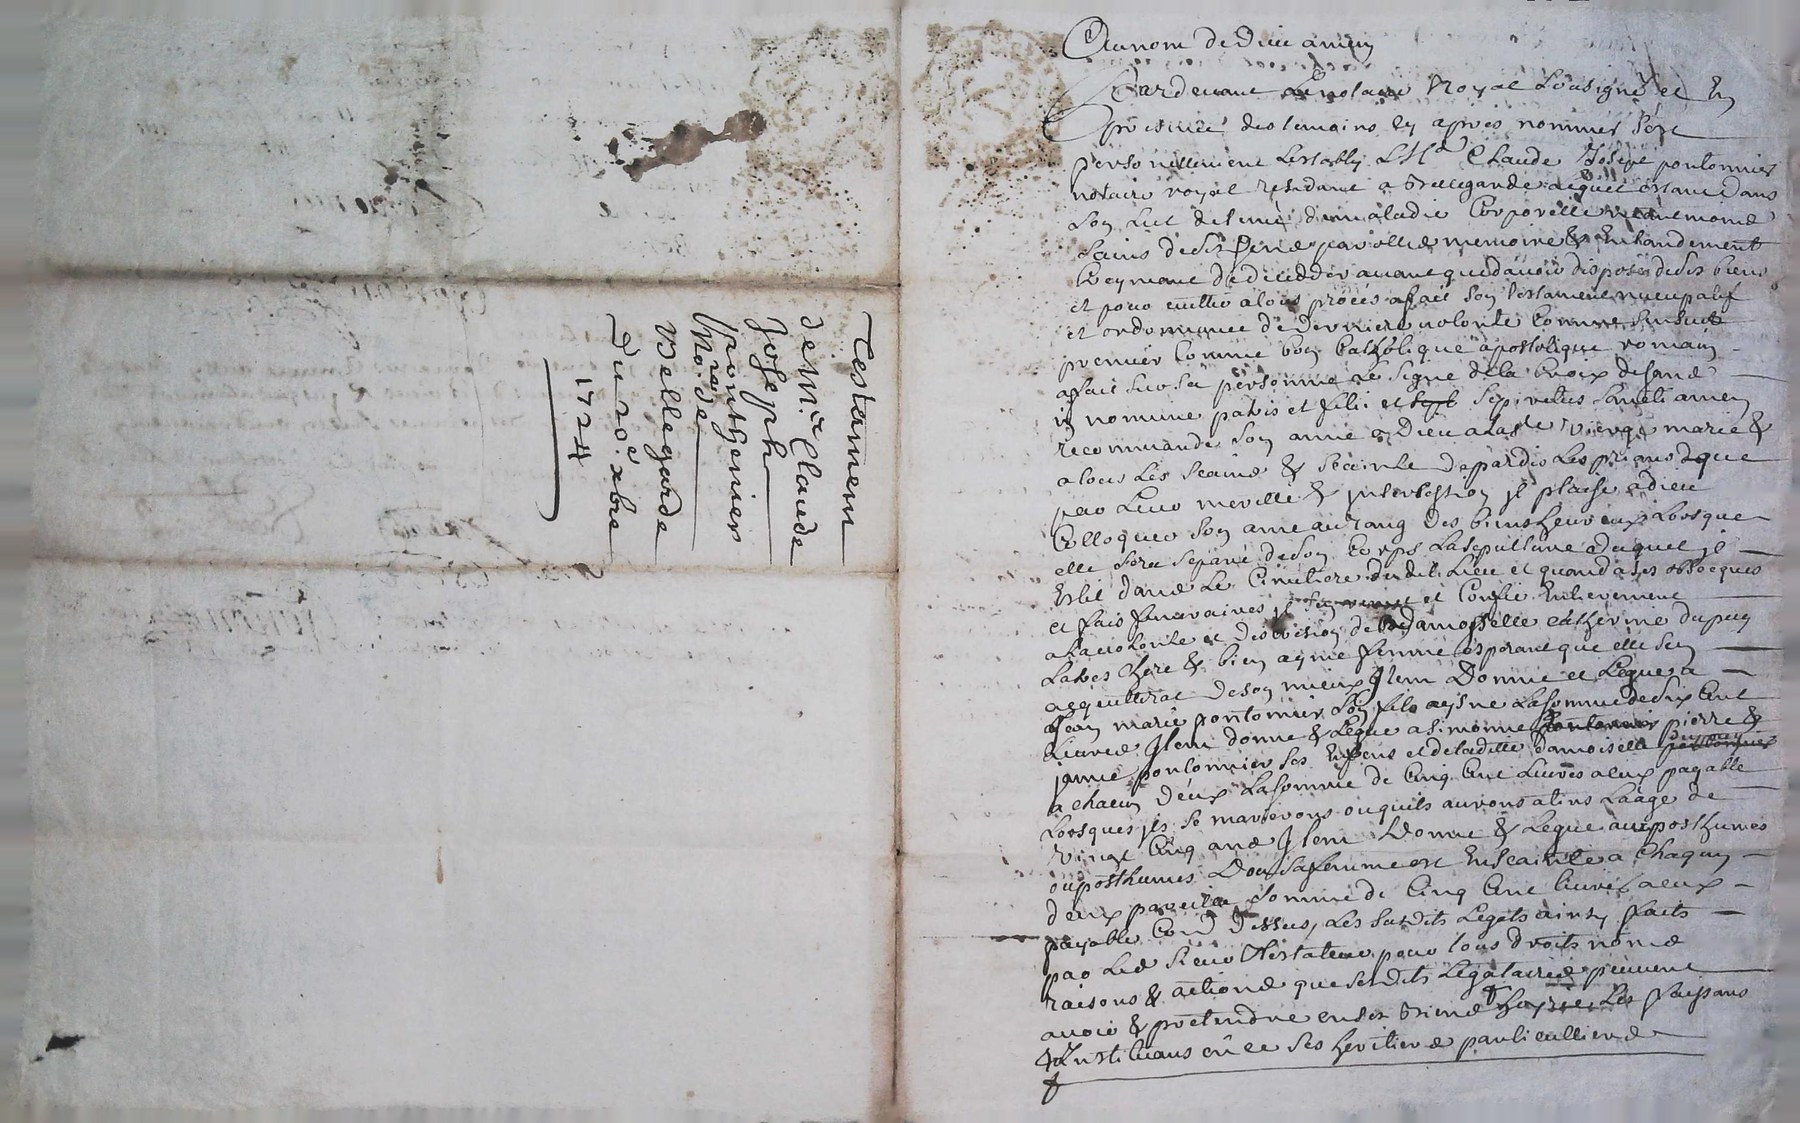 Testament
de Mre Claude
Joseph
ponthenier
No.re de
Bellegarde
Du 20e xbre
1724
Au nom de Dieu amen
Pardevant Le notaire Royal soûsigné et En
presence des temoins cy apres nommés s'est
personnellement Establÿ Mre Claude Joseph pontonnier
notaire royal residant a Bellegarde Lequel estant Dans
son Lict detenu d'une maladie Corporelle neanmoins
sains de ses sens parolle memoire & Entandement
Craignant de decedder avant que d'avoir disposer de ses biens
et pour eviter a tous procés a fait son testament nuncupatif
et ordonnance de Derniere volonté Comme s'ensuit
premier Comme bon Catholique apostolique romain
a fait sur sa personne Le signe de la Croix disant
in nomine patris et filii et Spiritus Sancti amen
recommandé son ame a Dieu a La ste vierge marie &
a tous Les Saints & Saintes de paradis Les priant que
par Leur meritte & intercession il plaise a dieu
Colloquer son ame au rang des bienheureux Lorsque
elle sera separée de son Corps La sepulture duquel il
Eslit dans Le Cimetiere du dit Lieu et quand a ses obseques
et frais funeraires il et Confie Entierement
a La volonté et discretion de damoiselle catherine dupuy
sa tres chere & bien aymée femme esperant que elle s'en
acquitterat de son mieux Item Donne et Legue a
Jean marie pontonnier son fils aysne La somme de six Cent
Livres Item donne & Legue a simonne pontonnier pierre &
janne pontonnier ses Enfens et de ladite damoiselle dupuy
a chacun d'eux La somme de Cinq Cent Livres a eux payable
Lorsques ils se marieront ou quils auront atins Laage de
vingt Cinq ans Item Donne & Legue aux posthumes
ou posthumes Dont sa femme est Enceainte a chaqun
d'eux pareille somme de Cinq Cent Livres a eux
payable Comme dessus, Les susdits Legats ainsy faits
par Led sieur Testateur pour tous droits noms
raisons & actions que sesdits Legataires peuvent
avoir & pretendre en ses biens & hoyrie Les faisant
& Instituans en ce ses heritiers particulliers